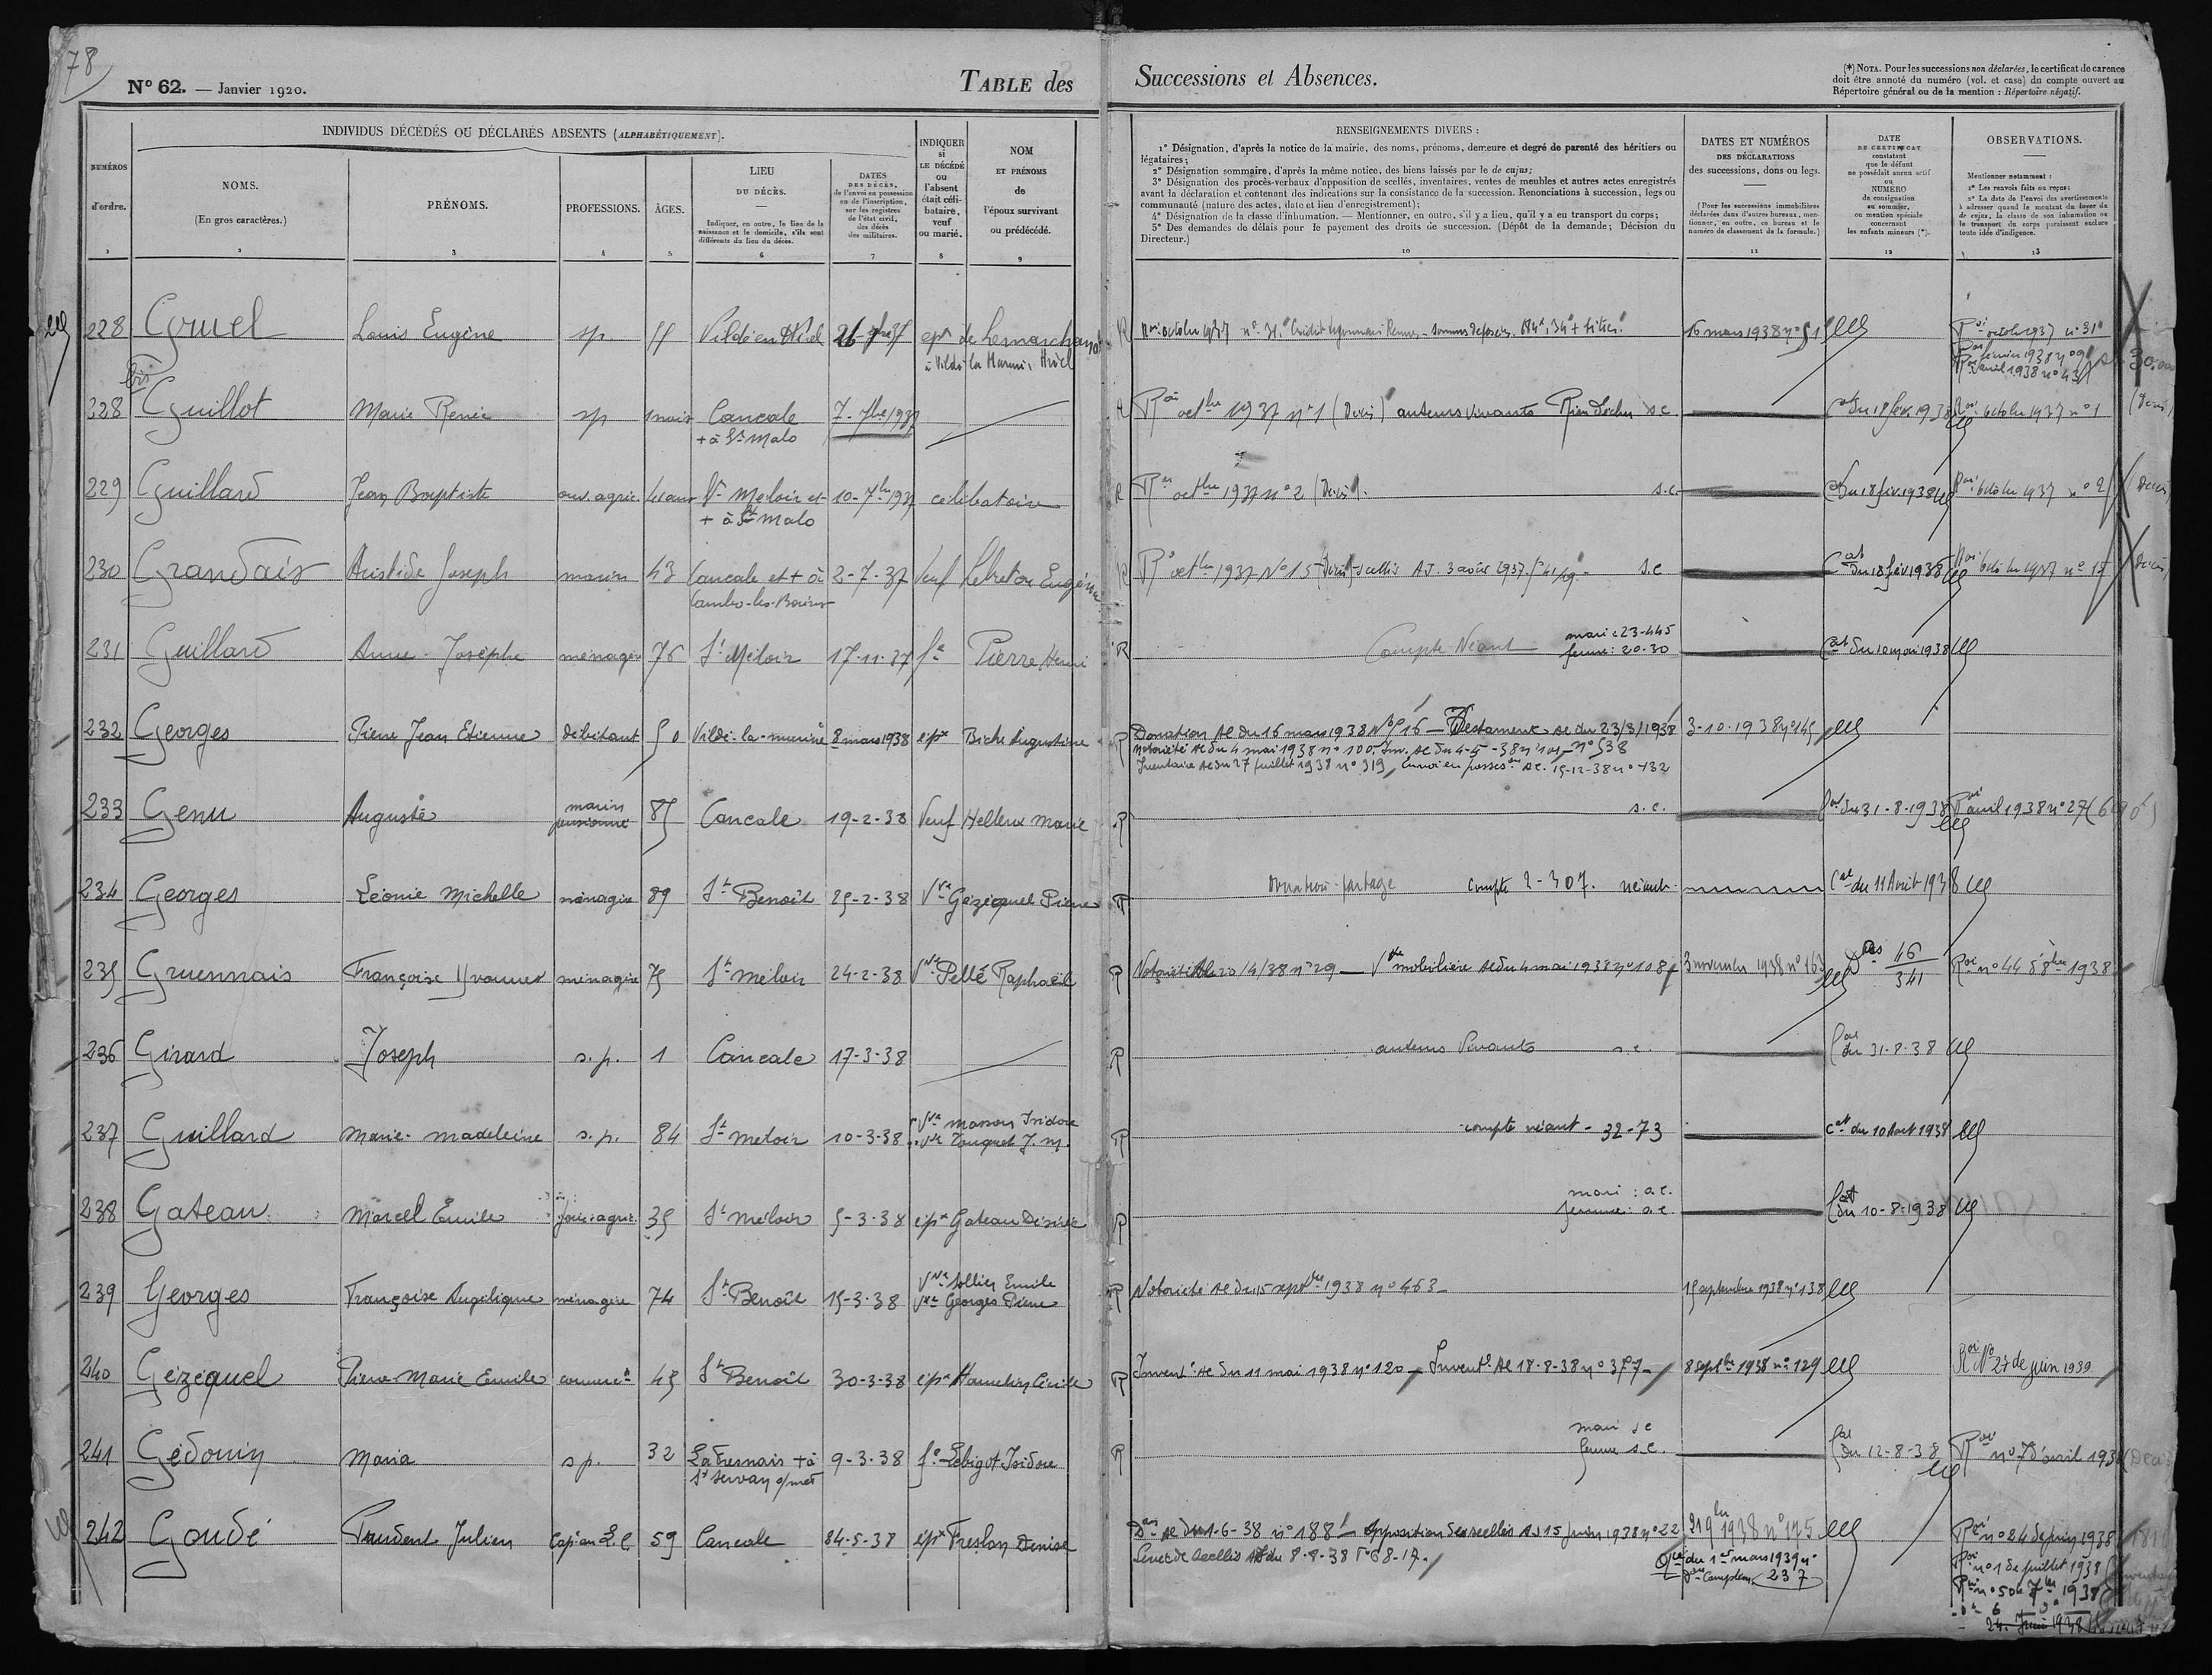 78
N° 62. — Janvier 1920.
TABLE des Successions et Absences.
(*) NOTA. Pour les successions non déclarées, le certificat de carence
doit être annoté du numéro (vol. et case) du compte ouvert au
Répertoire général ou de la mention : Répertoire négatif.
NUMÉROS d'ordre.
INDIVIDUS DÉCÉDÉS OU DÉCLARÉS ABSENTS (ALPHABÉTIQUEMENT).
NOMS.
(En gros caractères.)
PRÉNOMS.
PROFESSIONS.
ÂGES.
LIEU
DU DÉCÈS.
Indiquer, en outre, le lieu de la
naissance et le domicile, s'ils sont
différents du lieu du décès.
DATES
DES DÉCÈS,
de l'envoi en possession
ou de l'inscription,
sur les registres
de l'état civil,
des décès
des militaires.
INDIQUER
si
LE DÉCÉDÉ
ou
l'absent
était céli-
bataire,
veuf
ou marié.
NOM
ET PRÉNOMS
de
l'époux survivant
ou prédécédé.
RENSEIGNEMENTS DIVERS :
1° Désignation, d'après la notice de la mairie, des noms, prénoms, demeure et degré de parenté des héritiers ou
légataires;
2° Désignation sommaire, d'après la même notice, des biens laissés par le de cujus;
3° Désignation des procès-verbaux d'apposition de scellés, inventaires, ventes de meubles et autres actes enregistrés
avant la déclaration et contenant des indications sur la consistance de la succession. Renonciations à succession, legs ou
communauté (nature des actes, date et lieu d'enregistrement);
4° Désignation de la classe d'inhumation. — Mentionner, en outre, s'il y a lieu, qu'il y a eu transport du corps;
5° Des demandes de délais pour le payement des droits de succession. (Dépôt de la demande; Décision du
Directeur.)
DATES ET NUMÉROS
DES DÉCLARATIONS
des successions, dons ou legs.
(Pour les successions immobilières
déclarées dans d'autres bureaux, men-
tionner, en outre, ce bureau et le
numéro de classement de la formule.)
DATE
DU CERTIFICAT
constatant
que le défunt
ne possédait aucun actif
ou
NUMÉRO
de consignation
au sommier,
ou mention spéciale
concernant
les enfants mineurs (*).
OBSERVATIONS.
Mentionner notamment :
1° Les renvois faits ou reçus;
2° La date de l'envoi des avertissements
à adresser quand le montant du loyer du
de cujus, la classe de son inhumation ou
le transport du corps paraissent exclure
toute idée d'indigence.
2 3 4 5 6 7 8 9 10 11 12 13
228 Gruel Louis Eugène sp Vildé en Hirel de Lemarchand R octobre 1937 n° 31 Crédit Lyonnais Rennes 16 mars 1938 n° 51 octobre 1937 n° 31
à Vildé la Marine, Hirel février 1938 avril 1938 n° 43
bis
228 Guillot Marie Renée sp mois Cancale 7-7bre 1937 R octbre 1937 n° 1 (Decès) auteurs vivants s.c. Cat du 18 fév. 1938 Roi octobre 1937 n° 1
+ à St Malo
229 Guillard Jean Baptiste ouv. agric. St Meloir et 10-7bre 1937 célibataire R octbre 1937 n° 2 (Decès). s.c. Cat du 18 fév. 1938 Roi octobre 1937 n° 2
+ à St Malo
230 Grandais Aristide Joseph marin 43 Cancale et + à 2-7-37 Veuf Lebreton Eugénie R octbre 1937 N° 15 (Decès) scellés AJ. 3 août 1937 s.c Cat du 18 fév 1938 Roi octobre 1937 n° 15
Cambo-les-Bains
231 Guillard Anne-Josèphe ménagère 76 St Méloir 17-11-37 fe Pierre Henri R Compte Néant mari : 23-445
femme : 20-30 Cat du 10 mai 1938
232 Georges Pierre Jean Etienne débitant 50 Vildé-la-marine 8 mars 1938 epx Biche Augustine R Donation Ac du 16 mars 1938 N° 516 — Testament ac du 23/3/1938 3-10-1938 n° 145
notoriété ac du 4 mai 1938 n° 100 Inv. ac du 4-5-38 n° 101 n° 538
Inventaire ac du 27 juillet 1938 n° 319, envoi en possesion ac. 15-12-38 n° 732
233 Genu Auguste marin pensionné 85 Cancale 19-2-38 Veuf Helleux Marie R s.c. Cat du 31-8-1938 Roi avril 1938 n° 27
234 Georges Léonie Michelle ménagère 89 St Benoît 25-2-38 Vve Gézéquel Pierre R Donation-partage compte 2-307. néant. Cat du 11 Août 1938
235 Gruennais Françoise Yvonne ménagère 75 St Meloir 24-2-38 Vve Pellé Raphaël R Notoriété Ac 20/4/38 n° 29 — Vte mobilière ac du 4 mai 1938 n° 108 3 novembre 1938 n° 163 46/341 Roi n° 44 8bre 1938
236 Girard Joseph s.p. 1 Cancale 17-3-38 R auteurs vivants s.c. Cat du 31-8-38
237 Guillard Marie-Madeleine s.p. 84 St Meloir 10-3-38 Vve Masson Isidore
Vve Touquet J.M. R compte néant - 32-73 Cat du 10 Aout 1938
238 Gateau Marcel Emile journ. agric. 35 St Méloir 5-3-38 epx Gateau Désirée R mari : a.c.
femme : a.c. Cat du 10-8-1938
239 Georges Françoise Angélique ménagère 74 St Benoît 15-3-38 Vve Sollier Emile
Vve Georges Pierre R Notoriété ac du 15 septbre 1938 n° 463 15 septembre 1938 n° 138
240 Gézéquel Pierre-Marie Emile commerct 45 St Benoît 30-3-38 epx Hamelin Cécile R Invent. ac du 11 mai 1938 n° 120 — Invent. ac 18-8-38 n° 377 8 septbre 1938 n° 129 Roi N° 27 de juin 1939
241 Gédouin Maria sp. 32 La Fresnais + à 9-3-38 fe Lebigot Isidore R mari sc
St Servan s/mer femme s.c. Cat du 12-8-38 Roi n° 7 d'avril 1938
242 Goudé Prudent Julien Cap. au L.C. 59 Cancale 5-38 epx Freslon Denise Don ac du 1-6-38 n° 188 Apposition des scellés AJ 15 juin 1938 n° 22 219bre 1938 n° 175 Roi n° 24 de juin 1938
Levée de scellés AJ du 8-8-38 du 1er mars 1939 n° Roi n° 1 de juillet 1938
Don Complém. 237 Roi n° 50 7bre 1938
24. Juin 1938